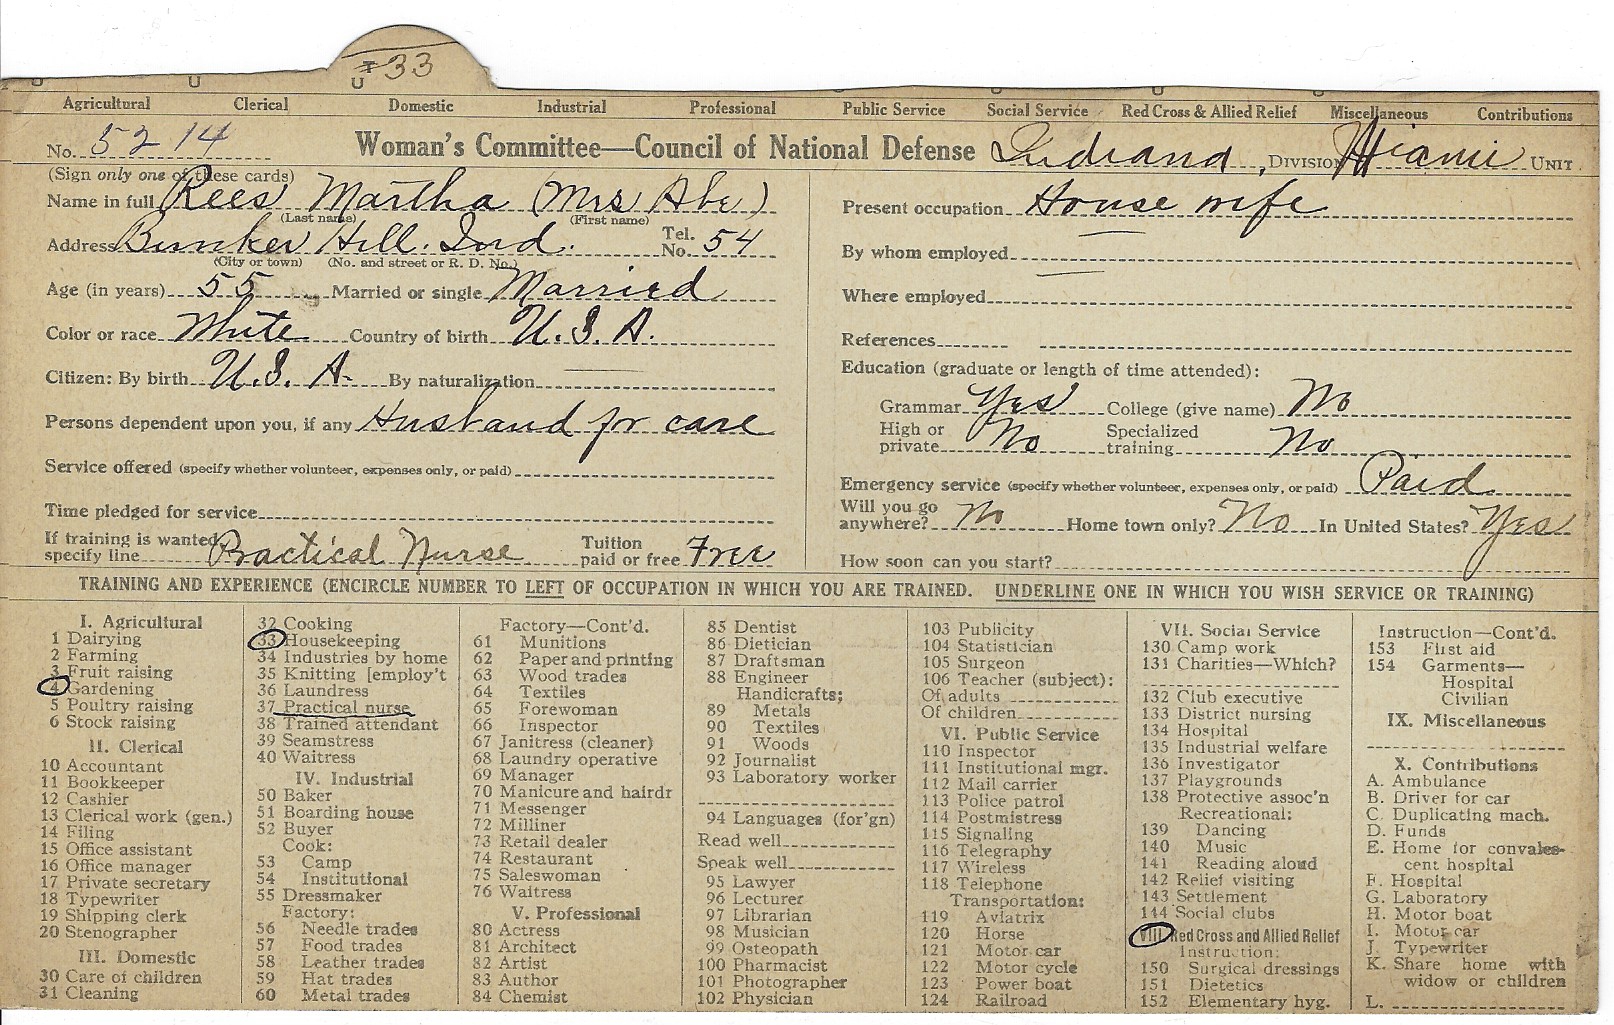 33
Agricultural Clerical Domestic Industrial Professional Public Service Social Service Red Cross & Allied Relief Miscellaneous Contributions
No. 5214 Woman's Committee—Council of National Defense Indiana, DIVISION Miami UNIT
(Sign only one of these cards)
Name in full Rees Martha (Mrs Abe)
(Last name) (First name)
Address Bunker Hill. Ind. Tel. No. 54
(City or town) (No. and street or R. D. No.)
Age (in years) 55 Married or single Married
Color or race White Country of birth U.S.A.
Citizen: By birth U.S.A. By naturalization
Persons dependent upon you, if any Husband for care
Service offered (specify whether volunteer, expenses only, or paid)
Time pledged for service
If training is wanted specify line Practical Nurse Tuition paid or free Free
Present occupation House wife
By whom employed
Where employed
References
Education (graduate or length of time attended):
Grammar Yes College (give name) No
High or private No Specialized training No
Emergency service (specify whether volunteer, expenses only, or paid) Paid
Will you go anywhere? No Home town only? No In United States? Yes
How soon can you start?
TRAINING AND EXPERIENCE (ENCIRCLE NUMBER TO LEFT OF OCCUPATION IN WHICH YOU ARE TRAINED. UNDERLINE ONE IN WHICH YOU WISH SERVICE OR TRAINING)
I. Agricultural
1 Dairying
2 Farming
3 Fruit raising
4 Gardening
5 Poultry raising
6 Stock raising
II. Clerical
10 Accountant
11 Bookkeeper
12 Cashier
13 Clerical work (gen.)
14 Filing
15 Office assistant
16 Office manager
17 Private secretary
18 Typewriter
19 Shipping clerk
20 Stenographer
III. Domestic
30 Care of children
31 Cleaning
32 Cooking
33 Housekeeping
34 Industries by home
35 Knitting [employ't
36 Laundress
37 Practical nurse
38 Trained attendant
39 Seamstress
40 Waitress
IV. Industrial
50 Baker
51 Boarding house
52 Buyer
Cook:
53 Camp
54 Institutional
55 Dressmaker
Factory:
56 Needle trades
57 Food trades
58 Leather trades
59 Hat trades
60 Metal trades
Factory—Cont'd.
61 Munitions
62 Paper and printing
63 Wood trades
64 Textiles
65 Forewoman
66 Inspector
67 Janitress (cleaner)
68 Laundry operative
69 Manager
70 Manicure and hairdr
71 Messenger
72 Milliner
73 Retail dealer
74 Restaurant
75 Saleswoman
76 Waitress
V. Professional
80 Actress
81 Architect
82 Artist
83 Author
84 Chemist
85 Dentist
86 Dietician
87 Draftsman
88 Engineer
Handicrafts:
89 Metals
90 Textiles
91 Woods
92 Journalist
93 Laboratory worker
94 Languages (for'gn)
Read well
Speak well
95 Lawyer
96 Lecturer
97 Librarian
98 Musician
99 Osteopath
100 Pharmacist
101 Photographer
102 Physician
103 Publicity
104 Statistician
105 Surgeon
106 Teacher (subject):
Of adults
Of children
VI. Public Service
110 Inspector
111 Institutional mgr.
112 Mail carrier
113 Police patrol
114 Postmistress
115 Signaling
116 Telegraphy
117 Wireless
118 Telephone
Transportation:
119 Aviatrix
120 Horse
121 Motor car
122 Motor cycle
123 Power boat
124 Railroad
VII. Social Service
130 Camp work
131 Charities—Which?
132 Club executive
133 District nursing
134 Hospital
135 Industrial welfare
136 Investigator
137 Playgrounds
138 Protective assoc'n
Recreational:
139 Dancing
140 Music
141 Reading aloud
142 Relief visiting
143 Settlement
144 Social clubs
VIII. Red Cross and Allied Relief
Instruction:
150 Surgical dressings
151 Dietetics
152 Elementary hyg.
Instruction—Cont'd.
153 First aid
154 Garments—
Hospital
Civilian
IX. Miscellaneous
X. Contributions
A. Ambulance
B. Driver for car
C. Duplicating mach.
D. Funds
E. Home for convales-
cent hospital
F. Hospital
G. Laboratory
H. Motor boat
I. Motor car
J. Typewriter
K. Share home with
widow or children
L.